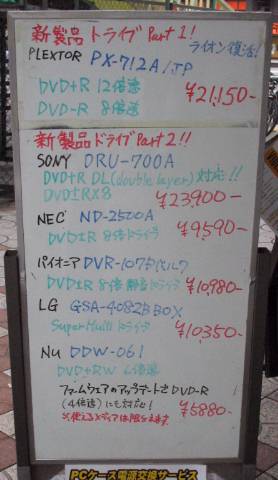 新製品ドライブ Part 1!
PLEXTOR PX-712A/JP ライオン復活!
DVD+R 12倍速
DVD-R 8倍速
¥21,150-
新製品ドライブ Part 2!!
SONY DRU-700A
DVD+R DL(double layer)対応!!
DVD±R×8
¥23,900-
NEC ND-2500A
DVD±R 8倍ドライブ
¥9,590-
パイオニア DVR-107Dバルク
DVD±R 8倍 静音ドライブ
¥10,980-
LG GSA-4082B BOX
Super Multi ドライブ
¥10,350-
Nu DDW-061
DVD+RW 4倍速
ファームウェアのアップデートでDVD-R
(4倍速)にも対応!
¥5880-
※使えるメディアは限られます。
PCケース電源交換サービス